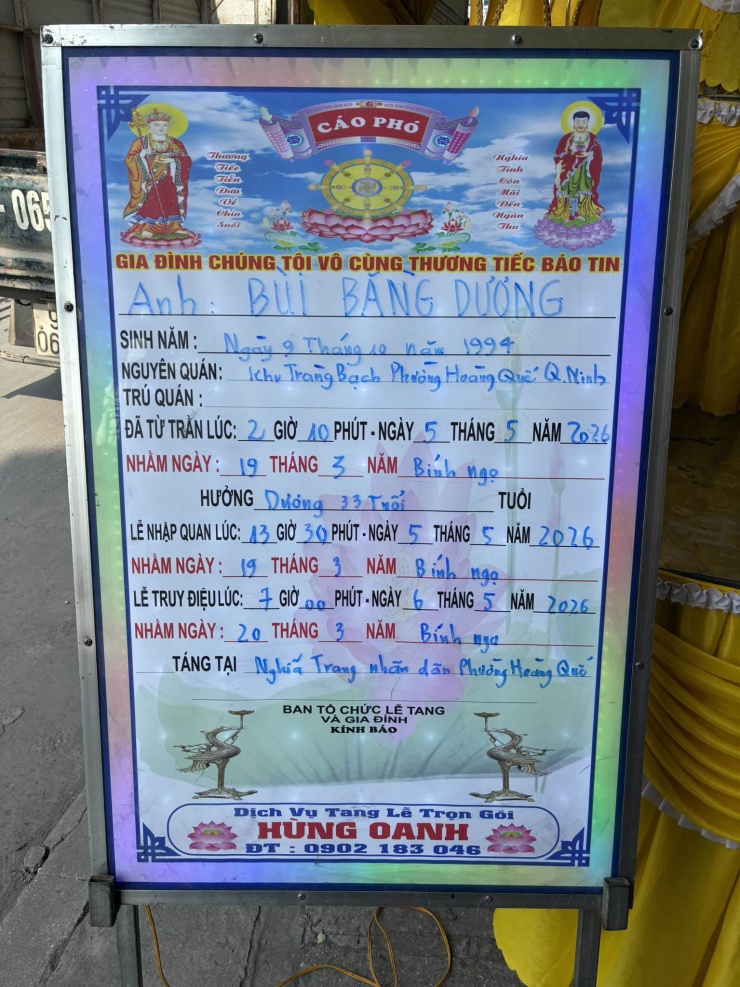 CÁO PHÓ
Thương
Tiếc
Tiễn
Đưa
Về
Chín
Suối
Nghĩa
Tình
Còn
Mãi
Đến
Ngàn
Thu
GIA ĐÌNH CHÚNG TÔI VÔ CÙNG THƯƠNG TIẾC BÁO TIN
Anh: BÙI BẰNG DƯƠNG
SINH NĂM: Ngày 9 Tháng 10 năm 1994
NGUYÊN QUÁN: Khu Tràng Bạch Phường Hoàng Quế Q. Ninh
TRÚ QUÁN:
ĐÃ TỪ TRẦN LÚC: 2 GIỜ 10 PHÚT - NGÀY 5 THÁNG 5 NĂM 2026
NHẰM NGÀY: 19 THÁNG 3 NĂM Bính ngọ
HƯỞNG Dương 33 Tuổi TUỔI
LỄ NHẬP QUAN LÚC: 13 GIỜ 30 PHÚT - NGÀY 5 THÁNG 5 NĂM 2026
NHẰM NGÀY: 19 THÁNG 3 NĂM Bính ngọ
LỄ TRUY ĐIỆU LÚC: 7 GIỜ 00 PHÚT - NGÀY 6 THÁNG 5 NĂM 2026
NHẰM NGÀY: 20 THÁNG 3 NĂM Bính ngọ
TÁNG TẠI Nghĩa Trang nhân dân Phường Hoàng Quế
BAN TỔ CHỨC LỄ TANG
VÀ GIA ĐÌNH
KÍNH BÁO
Dịch Vụ Tang Lễ Trọn Gói
HÙNG OANH
ĐT : 0902 183 046